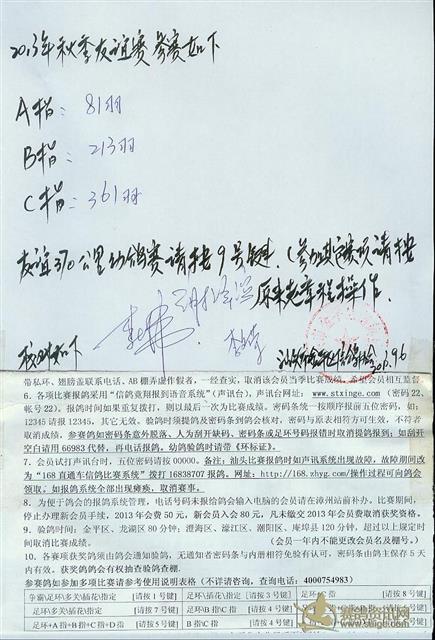 2013年秋季友谊赛参赛如下
A指: 81羽
B指: 213羽
C指: 361羽
友谊370公里幼鸽赛请按9号键.(参加其它赛项请按
原来规章程操作.
带私环、翅膀盖联系电话，AB棚弄虚作假者，一经查实，取消该会员当季比赛成绩，希望会员相互监督
6。各项比赛报鸽采用“信鸽竟翔报到语音系统”(声讯台)，声讯台网址：www.stxinge.com (密码 22，
帐号 22)。报鸽时间如果重复拨打，则以最后一次为比赛成绩。密码系统一按顺序报前五位密码，如：
12345 请报 12345，其它无效。验鸽时须提鸽及密码条到鸽会核对，密码与原表相符方可生效，不符者
取消成绩。参赛鸽如密码条意外脱落、人为刮开缺码、密码条或足环号码报错时取消得鸽报到；如刮开
空白请用 66983 代替，再电话报鸽，幼鸽验鸽时请带《环标证》。
7、会员试打声讯台时，五位密码请按 00000。备注：汕头比赛报鸽时如声讯系统出现故障，故障期间改
为“168 直通车信鸽比赛系统” 拨打 16838707 报鸽。网址：http://168.zhyg.com/操作过程可向鸽会
领取。如报鸽系统全部出现瘫痪，取消赛事。
8、为便于鸽会的报鸽系统管理，电话号码未报给鸽会输入电脑的会员请在漳州站前补办。比赛期间，
停止办理新会员手续。2013 年会费 50 元，新会员入会 80 元。凡未缴交 2013 年会费取消获奖资格。
9、验鸽时间：金平区、龙湖区 80 分钟；澄海区、濠江区、潮阳区、库埠县 120 分钟，超过以上规定时
间取消比赛成绩。 (会员一年内不能更改会员名及棚号。)
10、各赛项获奖鸽须由鸽会通知验鸽，无通知者密码条与内册相符免验有认可，密码条由鸽主保存 5 天
内有效。获奖鸽鸽会有权抽查验鸽查棚。
参赛鸽如参加多项比赛请参考使用说明表格（不详请咨询，查询电话：4000754983)
争霸\足环\多关\插花\指定 [请按 1 号键] 足环\插花\指定 [请按 3 号键] 足环\C 指 [请按 8 号键]
足环\多关\插花\指定 [请按 2 号键] 足环\B 指\C 指 [请按 4 号键]
足环+A 指+B 指+C 指+D 指 [请按 5 号键] B 指\C 指